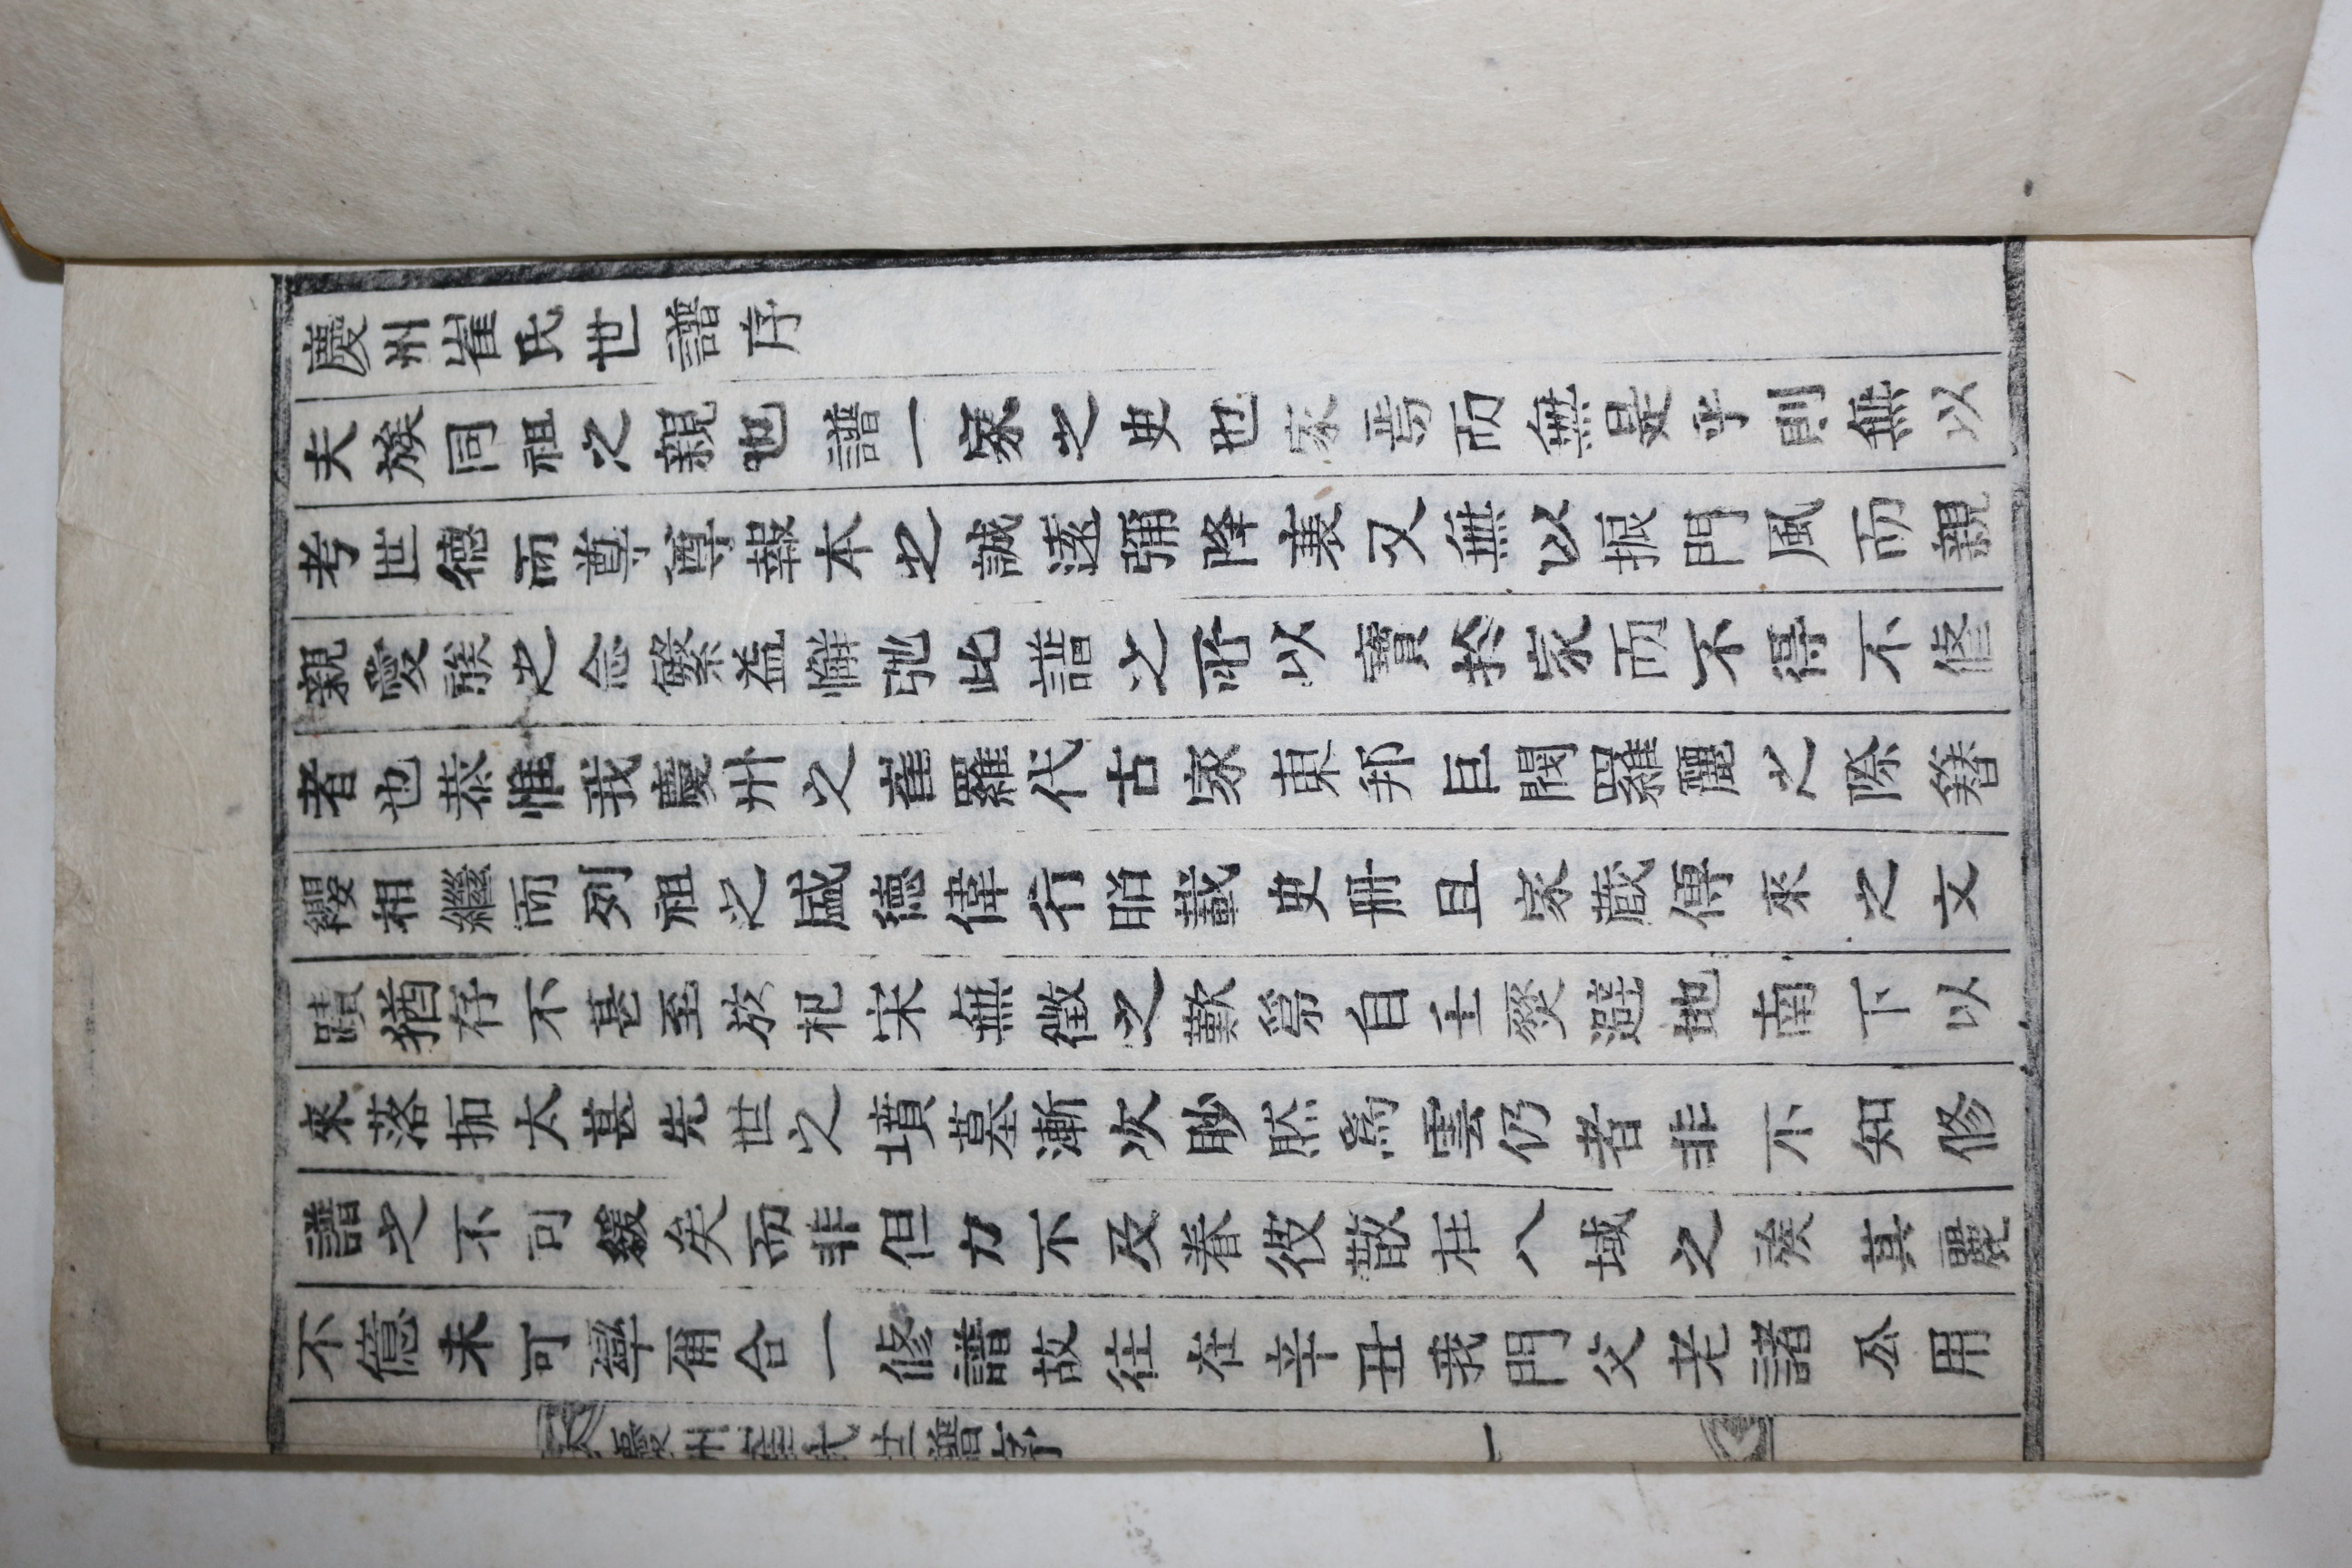 慶州崔氏世譜序
夫族同祖之親也譜一家之史也家焉而無是乎則無以
考世德而尊尊報本之誠遠彌降衰又無以振門風而親
親愛族之念繁益懈弛此譜之所以寶於家而不得不修
者也恭惟我慶州之崔羅代古家東邦巨閥羅麗之際簪
纓相繼而列祖之盛德偉行昭載史冊且家蔵傳來之文
蹟猶存不甚至於杞宋無徵之歎第自壬燹避地南下以
來落拓太甚先世之墳墓漸次眇然爲雲仍者非不知修
譜之不可緩矣而非但力不及眷彼散在八域之族其麗
不億未可率爾合一修譜故往在辛丑我門父老諸公用
慶州崔氏世譜序 一